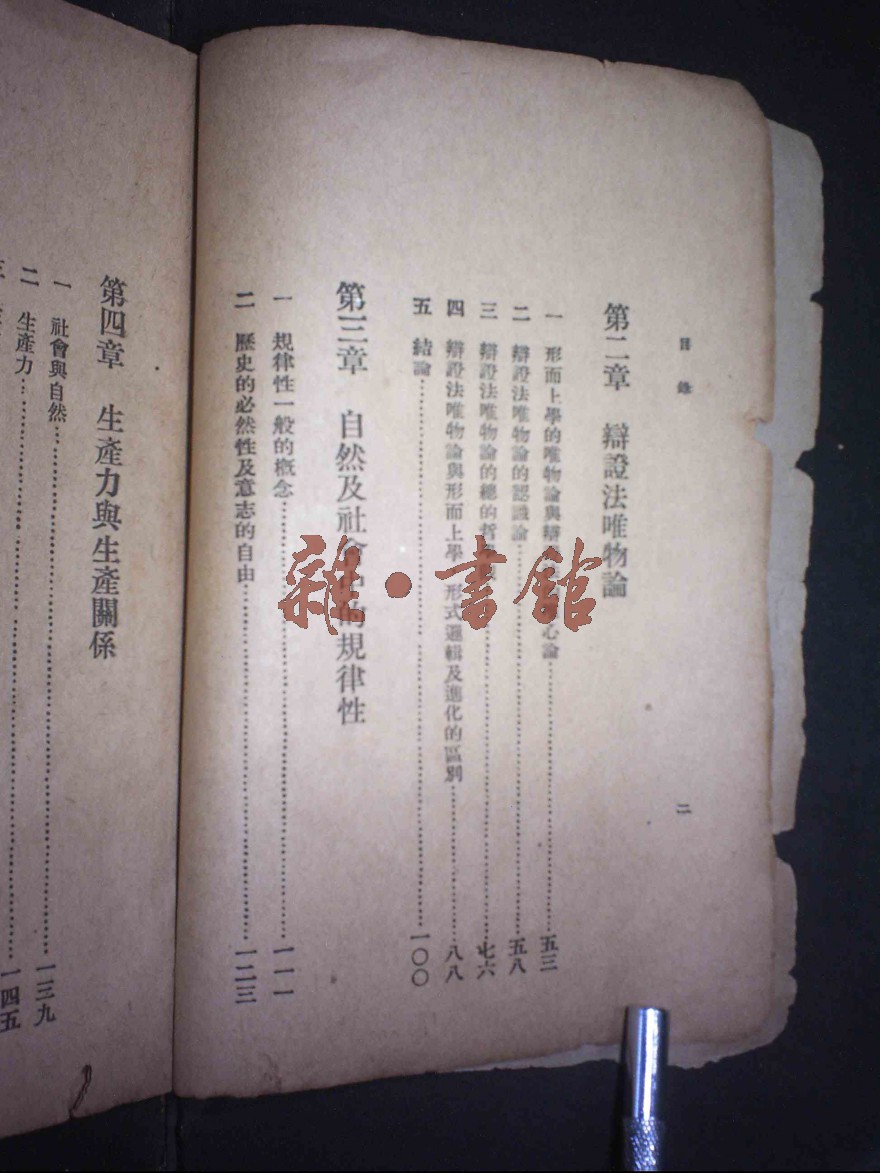 目錄
二
第二章 辯證法唯物論
一 形而上學的唯物論與辯 心論……五三
二 辯證法唯物論的認識論……五八
三 辯證法唯物論的總的哲……七六
四 辯證法唯物論與形而上學 形式邏輯及進化的區別……八八
五 結論……一〇〇
第三章 自然及社會 的規律性
一 規律性一般的概念……一一一
二 歷史的必然性及意志的自由……一二三
第四章 生產力與生產關係
一 社會與自然……一三九
二 生產力……一四五
雜·書館